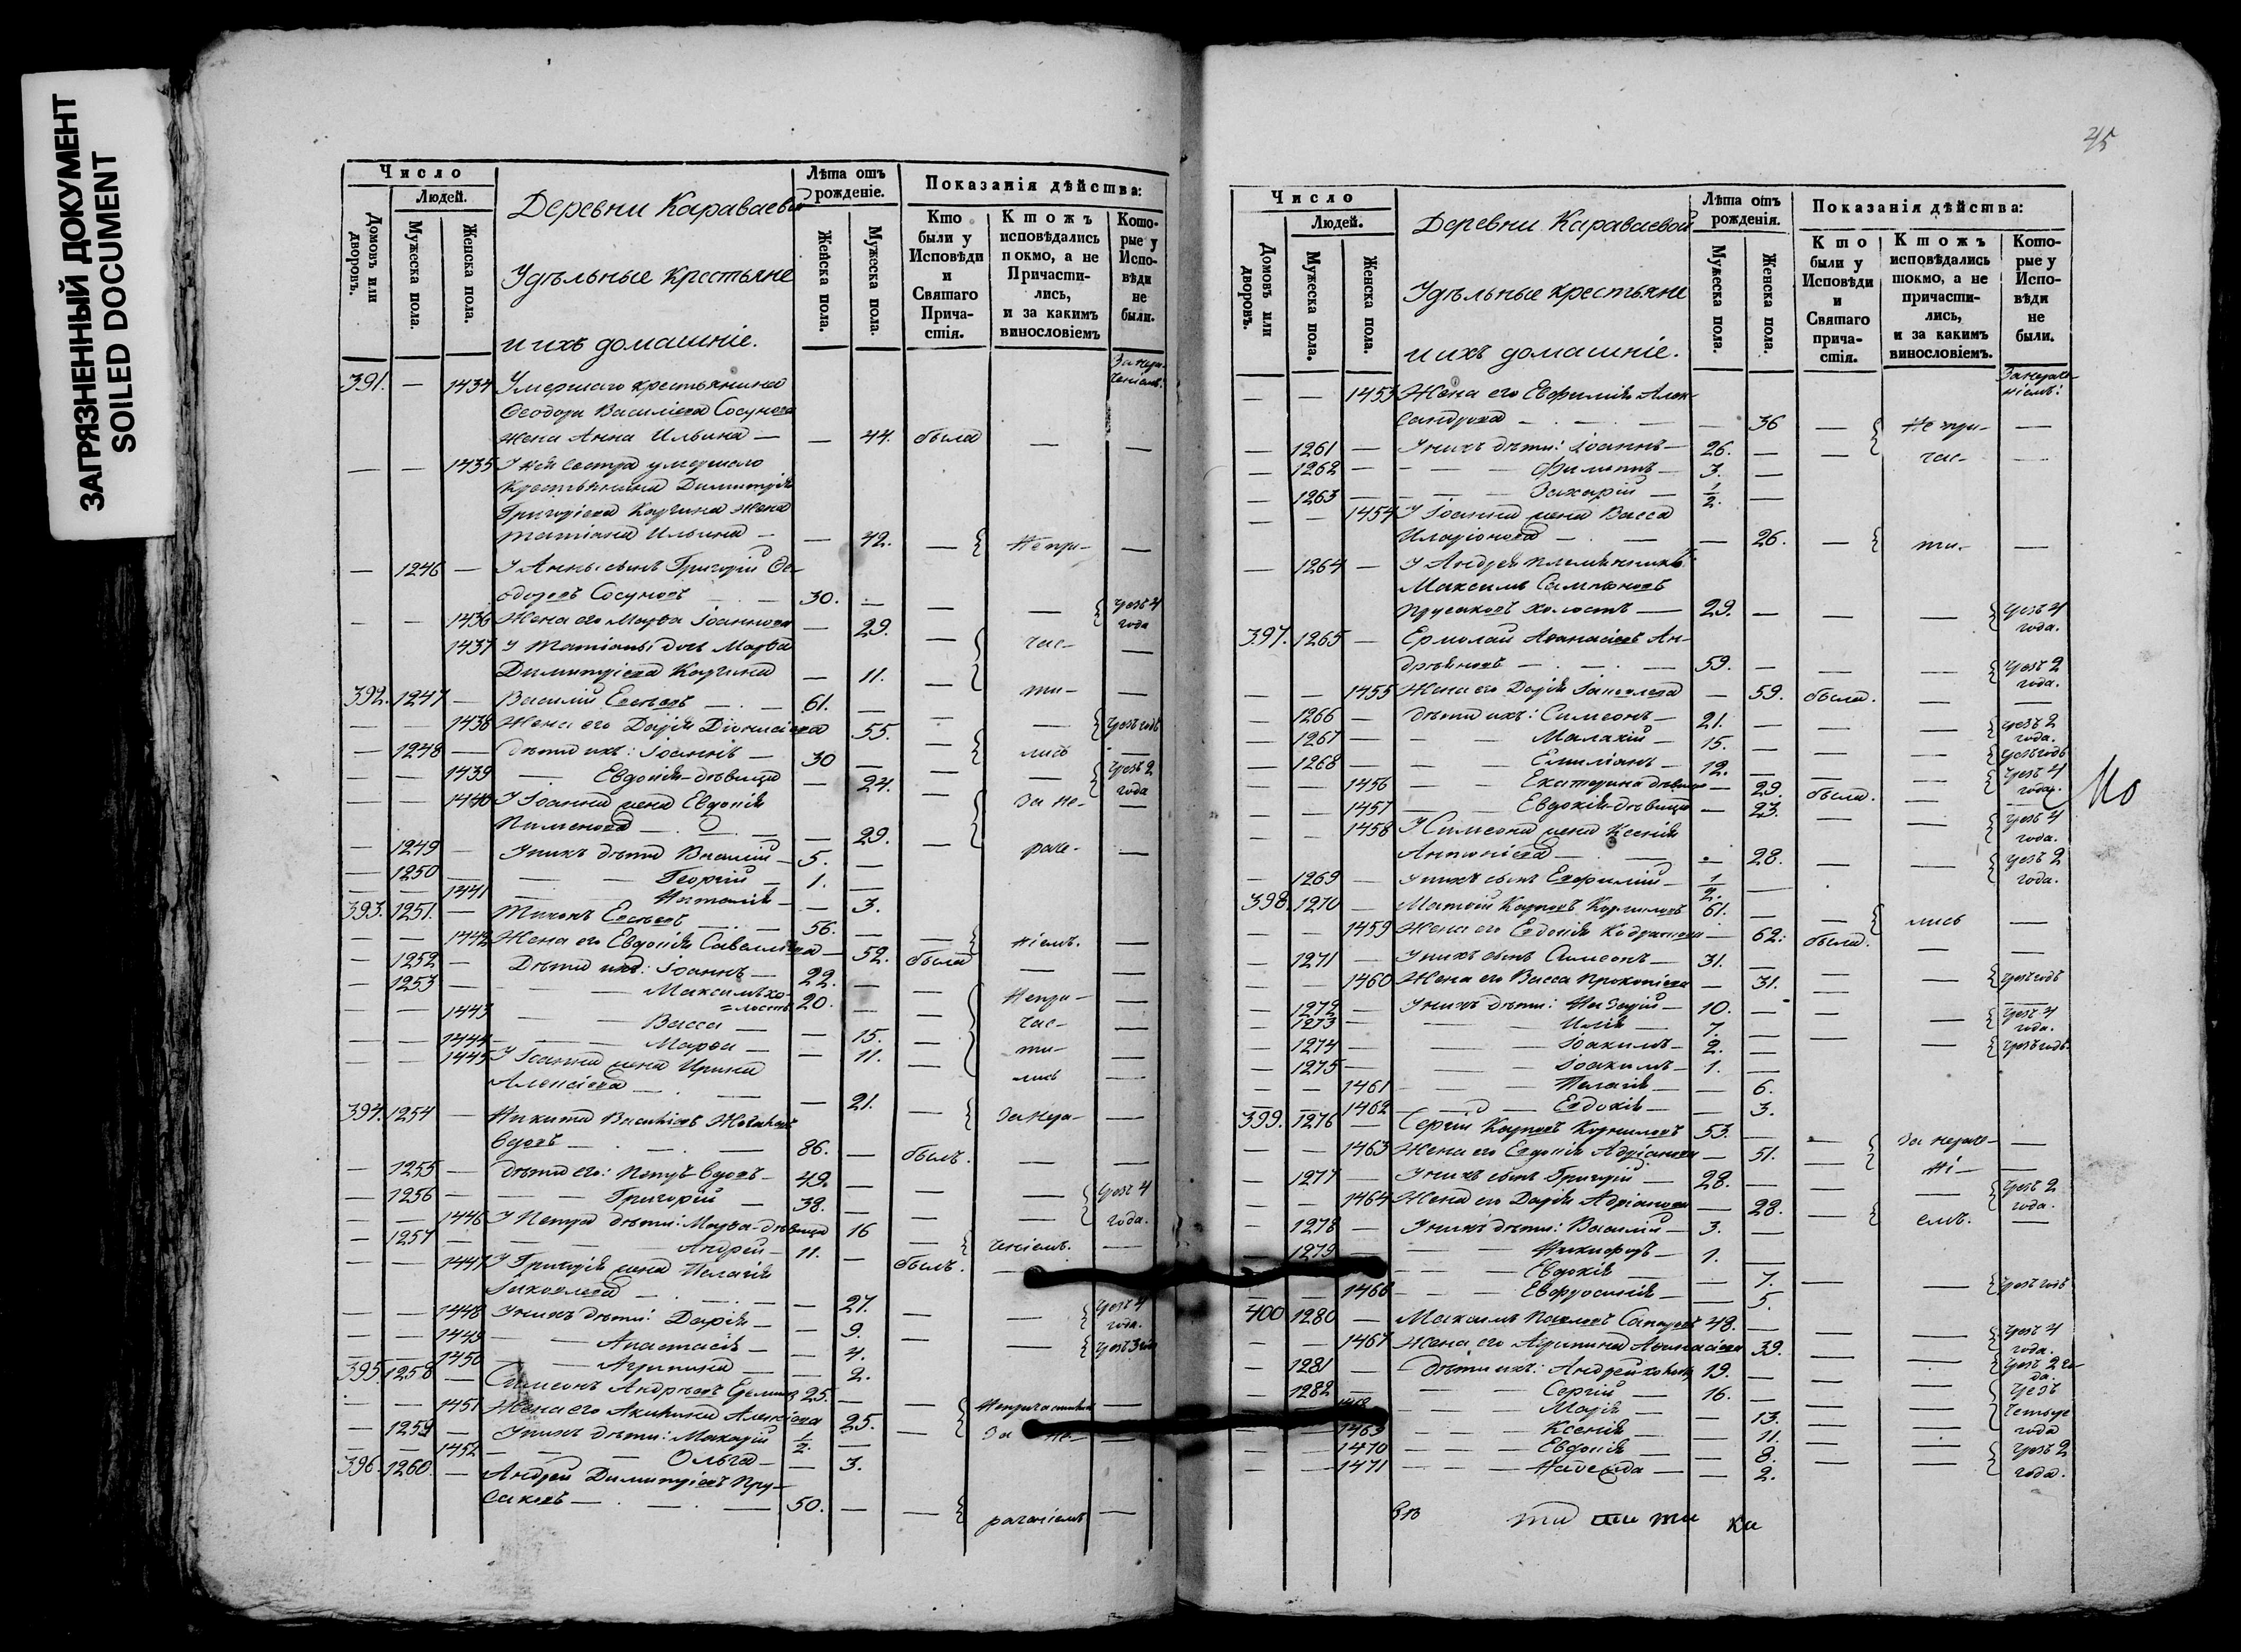 ЗАГРЯЗНЕННЫЙ ДОКУМЕНТ
SOILED DOCUMENT
Число
Людей.
Домовъ или дворовъ.
Мужеска пола.
Женска пола.
Деревни Караваевой
Удѣльные Крестьяне
и ихъ домашніе.
Лѣта отъ рожденіе.
Женска пола.
Мужеска пола.
Показанія дѣйства:
Кто были у Исповѣди и Святаго Причастія.
Ктожъ исповѣдались покмо, а не Причастились, и за какимъ винословіемъ
Которые у Исповѣди не были.
391. — 1434 Умершаго крестьянина
Ѳеодора Василіева Сосунова
жена Анна Ильина — — 44. была — —
— — 1435 У ней сестра умершаго
крестьянина Димитрія
Григоріева Каргина жена
Татіана Ильина — — 42. — Непри- —
— 1246 — У Анны сынъ Григорій Ѳе-
одоровъ Сосуновъ — 30. — — — чрезъ 4 года
— — 1436 Жена его Марѳа Іоаннова — 29. —
1437 У Татіаны дочь Марѳа час- —
Димитріева Каргина — 11. —
392. 1247 — Василій Евсѣевъ — 61. — ти- —
— — 1438 Жена его Дарія Діонисіева 55. — — чрезъ годъ
— 1248 — дѣти ихъ: Іоаннъ — 30 — — лись —
— — 1439 — Евдокія дѣвица — 24. — — чрезъ 2 года
— — 1440 У Іоанна жена Евдокія За не- —
Пименова — — 29. —
— 1249 — У нихъ дѣти Василій — 5. — раче- —
— 1250 — — Георгій — 1. —
— — 1441 — Наталія — — 3.
393. 1251. — Тихонъ Евсѣевъ — 56. — —
— — 1442 Жена его Евдокія Савельева — 52. была ніемъ. —
— 1252 — Дѣти ихъ: Іоаннъ — 22. — — —
— 1253 — — Максимъ хо-
=лостъ 20. — — Непри- —
— — 1443 — Васса — — 15. — час- —
— — 1444 — Марѳа — — 11. — ти-
— — 1445 У Іоанна жена Ирина
Алексіева — — 21. — лись —
394. 1254 — Никита Василіевъ За нера- —
вдовъ — 86. — былъ. — —
— 1255 — дѣти его: Петръ вдовъ — 49. — —
— 1256 — — Григорій — 38. — — чрезъ 4 года.
— — 1446 У Петра дѣти: Марѳа дѣвица 16 —
— 1257 — — Андрей — 11. — — ченіемъ. —
— — 1447 У Григорія жена Пелагія былъ.
Іаковлева — — 27. —
— — 1448 У нихъ дѣти: Дарія — — 9. — — чрезъ 4 года.
— — 1449 — Анастасія — — 4. — чрезъ 3 года
— — 1450 — Агрипина — — 2.
395. 1258 — Симеонъ Андрѣевъ 25. —
— — 1451 Жена его Акилина Алексіева 25. —
— 1259 — У нихъ дѣти: Макарій 1/2. — За не- —
— — 1452 — Ольга — — 3.
396. 1260. — Андрей Димитріевъ Пру-
саковъ — 50. — — раченіемъ —
45
Число
Людей.
Домовъ или дворовъ.
Мужеска пола.
Женска пола.
Деревни Караваевой
Удѣльные крестьяне
и ихъ домашніе.
Лѣта отъ рожденія.
Мужеска пола.
Женска пола.
Показанія дѣйства:
Кто были у Исповѣди и Святаго причастія.
Ктожъ исповѣдались токмо, а не причастились, и за какимъ винословіемъ.
Которые у Исповѣди не были.
— — 1453 Жена его Евфимія Алек-
сандрова — — 36 — Непри- —
— 1261 — У нихъ дѣти: Іоаннъ — 26. — — час- —
— 1262 — — Филиппъ — 3. —
— 1263 — — Захарій — 1/2. —
— — 1454 У Іоанна жена Васса
Иларіонова — — 26. — ти- —
— 1264 — У Андрея племянникъ
Максимъ Сампсоновъ
Прусаковъ холостъ — 29. — — чрезъ 4 года.
397. 1265 — Ермолай Аѳанасіевъ Ан-
дрѣяновъ — 59. — — — чрезъ 2 года.
— — 1455 Жена его Дарія Іаковлева — 59. была. — —
— 1266 — дѣти ихъ: Симеонъ — 21. — — чрезъ 2 года.
— 1267 — — Малахій — 15. — — — чрезъ годъ
— 1268 — — Емиліанъ — 12. — — — чрезъ 4 года.
— — 1456 — Екатерина дѣвица — 29. была. — —
— — 1457 — Евдокія дѣвица — 23. — — чрезъ 4 года.
— — 1458 У Симеона жена Ксенія
Антоніева — — 28. — — чрезъ 2 года.
— 1269 — У нихъ сынъ Евфимій — 1/2. —
398. 1270 — Матѳей Карповъ Корниловъ 61. — — лись —
— — 1459 Жена его Евдокія — 62. была. — —
— 1271 — У нихъ сынъ Симеонъ — 31. — —
— — 1460 Жена его Васса Прокопіева — 31. — — чрезъ годъ
— 1272 — У нихъ дѣти: — 10. — — —
— 1273 — — Илія — 7. — — чрезъ 4 года.
— 1274 — — Іоакимъ — 2. — — чрезъ годъ
— 1275 — — Іоакимъ — 1. —
— — 1461 — Пелагія — — 6.
— — 1462 — Евдокія — — 3.
399. 1276 — Сергій Карповъ Корниловъ 53. — — За нераче- —
— — 1463 Жена его Евдокія Адріанова — 51. — ні- —
— 1277 — У нихъ сынъ Григорій — 28. — — чрезъ 2 года.
— — 1464 Жена его Дарія Адріанова — 28. — емъ. —
— 1278 — У нихъ дѣти: Василій — 3. —
— 1279 — — Никифоръ — 1. —
— Евдокія — 7. — — чрезъ годъ
— — 1466 — Евфросинія — — 5.
400 1280 — Максимъ Павловъ 48. — — чрезъ 4 года.
— — 1467 Жена его Агрипина Аѳанасіева 39. — — чрезъ 2 года.
— 1281 — дѣти ихъ: Андрей 19. — — —
— 1282 — — Сергій — 16. — — — чрезъ четыре года
— Марія — — 13. — —
— — 1469 — Ксенія — — 11. — —
— — 1470 — Евдокія — — 8. — — чрезъ 2 года.
— — 1471 — Надежда — — 2.